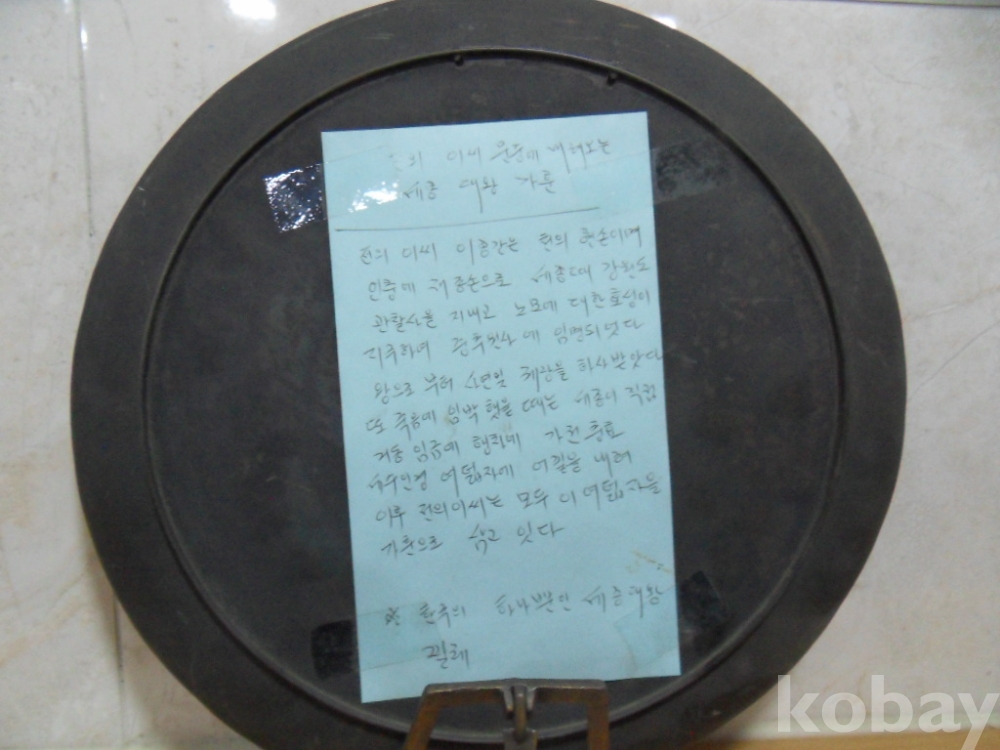 의 이씨 문중에 내려오는
세종 대왕 가훈
전의 이씨 이종간는 전의 후손이며
인중에 제종손으로 세종때 강원도
관찰사을 지내고 노모에 대한 효성이
지극하여 임명되엇다
왕으로 부터 하사 받앗다
또 죽음에 임박 햇을 때는 세종이 직접
거동 임금에 가전충효
세수인경 여덟자에 어필을 내려
이후 전의이씨는 모두 이 여덟자을
가훈으로 삼고 잇다
※ 한국의 하나뿐인 세종대왕
필체
kobay